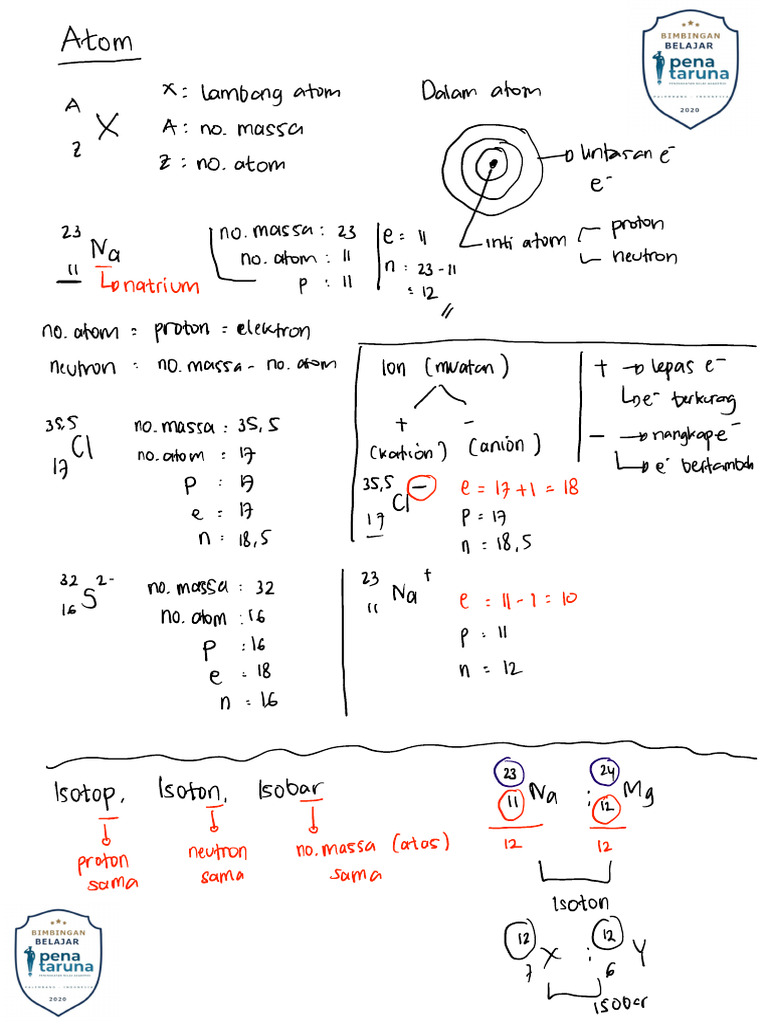 Atom
BIMBINGAN
BELAJAR
pena
taruna
2020
A
Z
X
X : lambang atom
A : no. massa
Z : no. atom
Dalam atom
lintasan e⁻
e⁻
inti atom
proton
neutron
23
11
Na
natrium
no. massa : 23
no. atom : 11
p : 11
e = 11
n : 23 - 11
: 12
no. atom = proton = elektron
neutron = no. massa - no. atom
Ion (muatan)
+ -
(kation) (anion)
+ → lepas e⁻
e⁻ berkurang
- → nangkap e⁻
e⁻ bertambah
35,5
17
Cl
no. massa : 35,5
no. atom : 17
p : 17
e = 17
n : 18,5
35,5
17
Cl⁻
e = 17 + 1 = 18
p = 17
n = 18,5
32
16
S²⁻
no. massa : 32
no. atom : 16
p : 16
e = 18
n : 16
23
11
Na⁺
e = 11 - 1 = 10
p = 11
n = 12
Isotop, Isoton, Isobar
proton
sama
neutron
sama
no. massa (atas)
sama
23
11
Na
12
;
24
12
Mg
12
Isoton
12
7
X
;
12
6
Y
isobar
BIMBINGAN
BELAJAR
pena
taruna
PALEMBANG - INDONESIA
2020